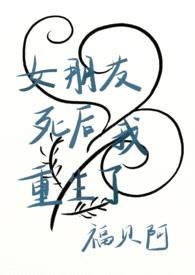 女朋友
死后我
重生了
福贝阿